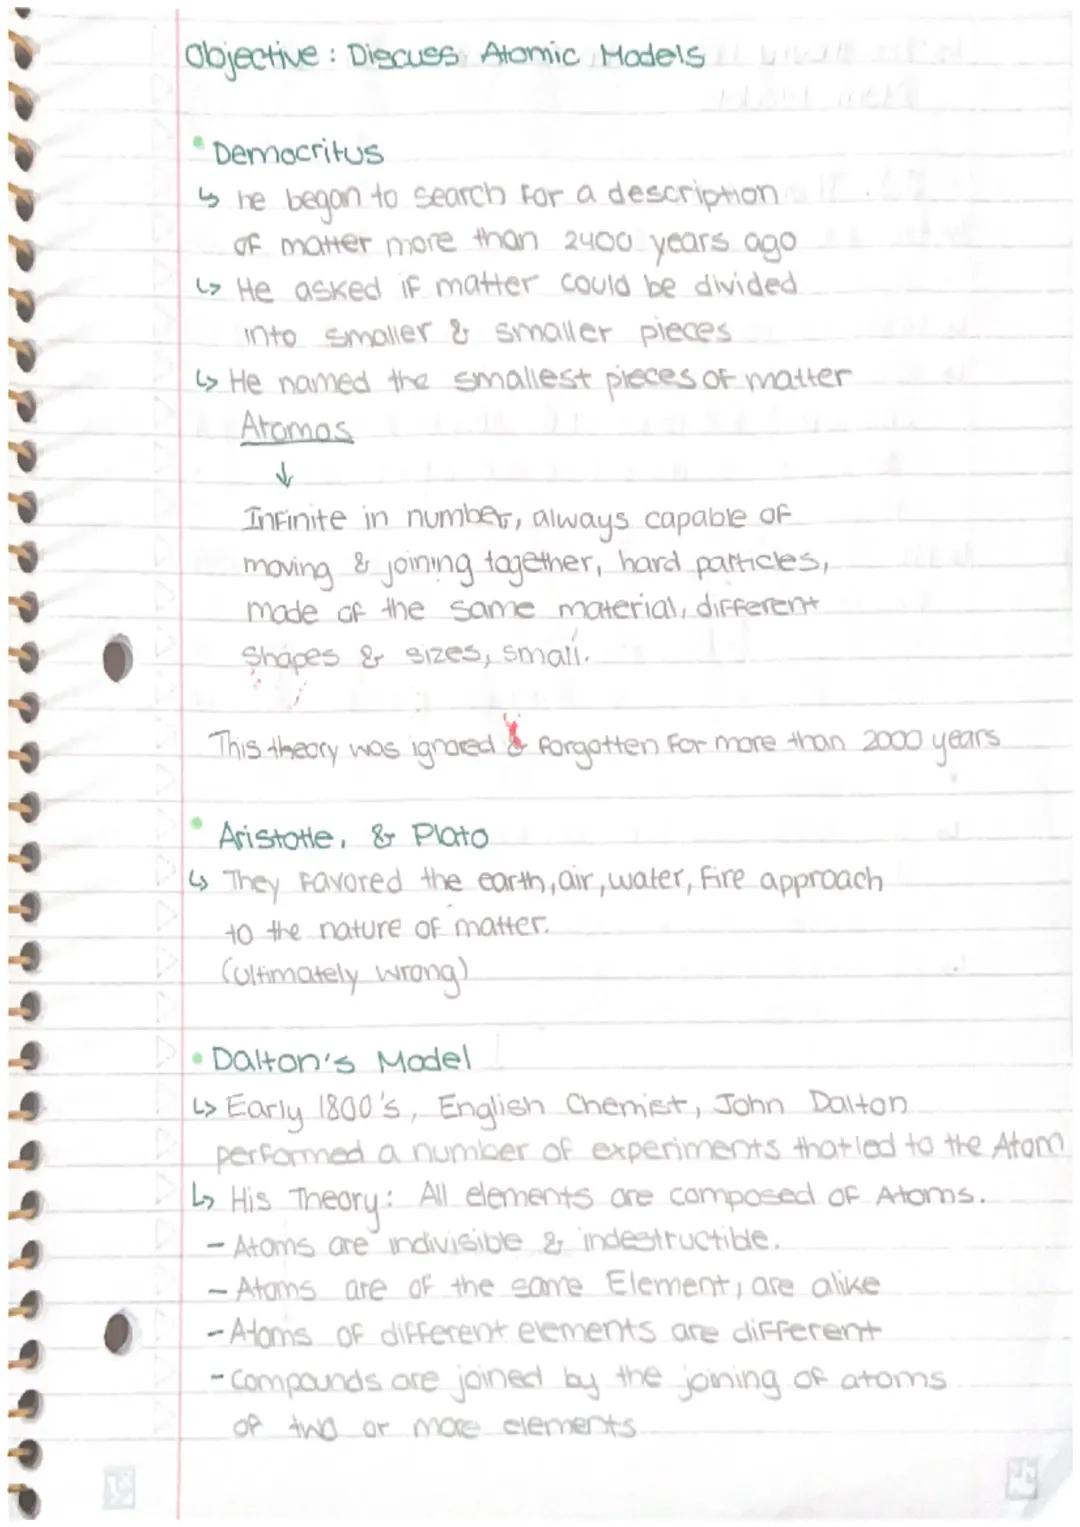 Objective: Discuss Atomic Models
• Democritus
↳ he began to search for a description
of matter more than 2400 years ago
↳ He asked if matter could be divided
into smaller & smaller pieces
↳ He named the smallest pieces of matter
Atomos
↓
Infinite in number, always capable of
moving & joining together, hard particles,
made of the same material, different
shapes & sizes, small.
This theory was ignored & forgotten for more than 2000 years
• Aristotle, & Plato
↳ They favored the earth, air, water, fire approach
to the nature of matter.
(ultimately wrong)
• Dalton's Model
↳ Early 1800's, English Chemist, John Dalton
performed a number of experiments that led to the Atom
↳ His Theory: All elements are composed of Atoms.
- Atoms are indivisible & indestructible.
- Atoms are of the same Element, are alike
- Atoms of different elements are different
- Compounds are joined by the joining of atoms
of two or more elements